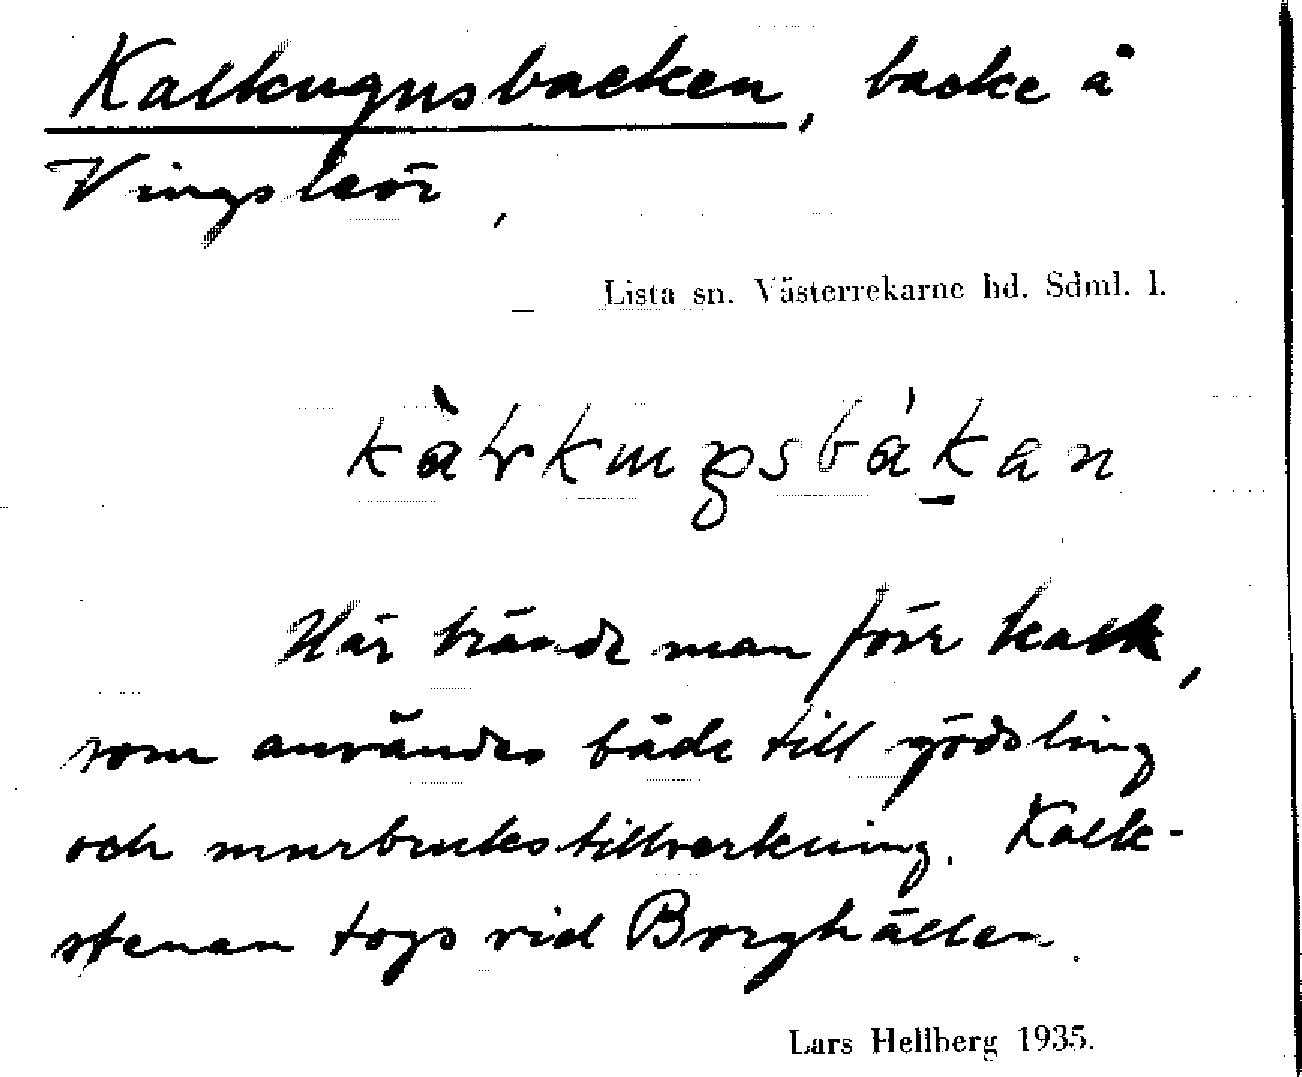 Kalkugnsbacken, backe å
Vingsleör,
Lista sn. Västerrekarne hd. Sdml. l.
Här brände man förr kalk,
som användes både till gödsling
och murbrukstillverkning. Kalk-
stenen togs vid Borghällen.
Lars Hellberg 1935.